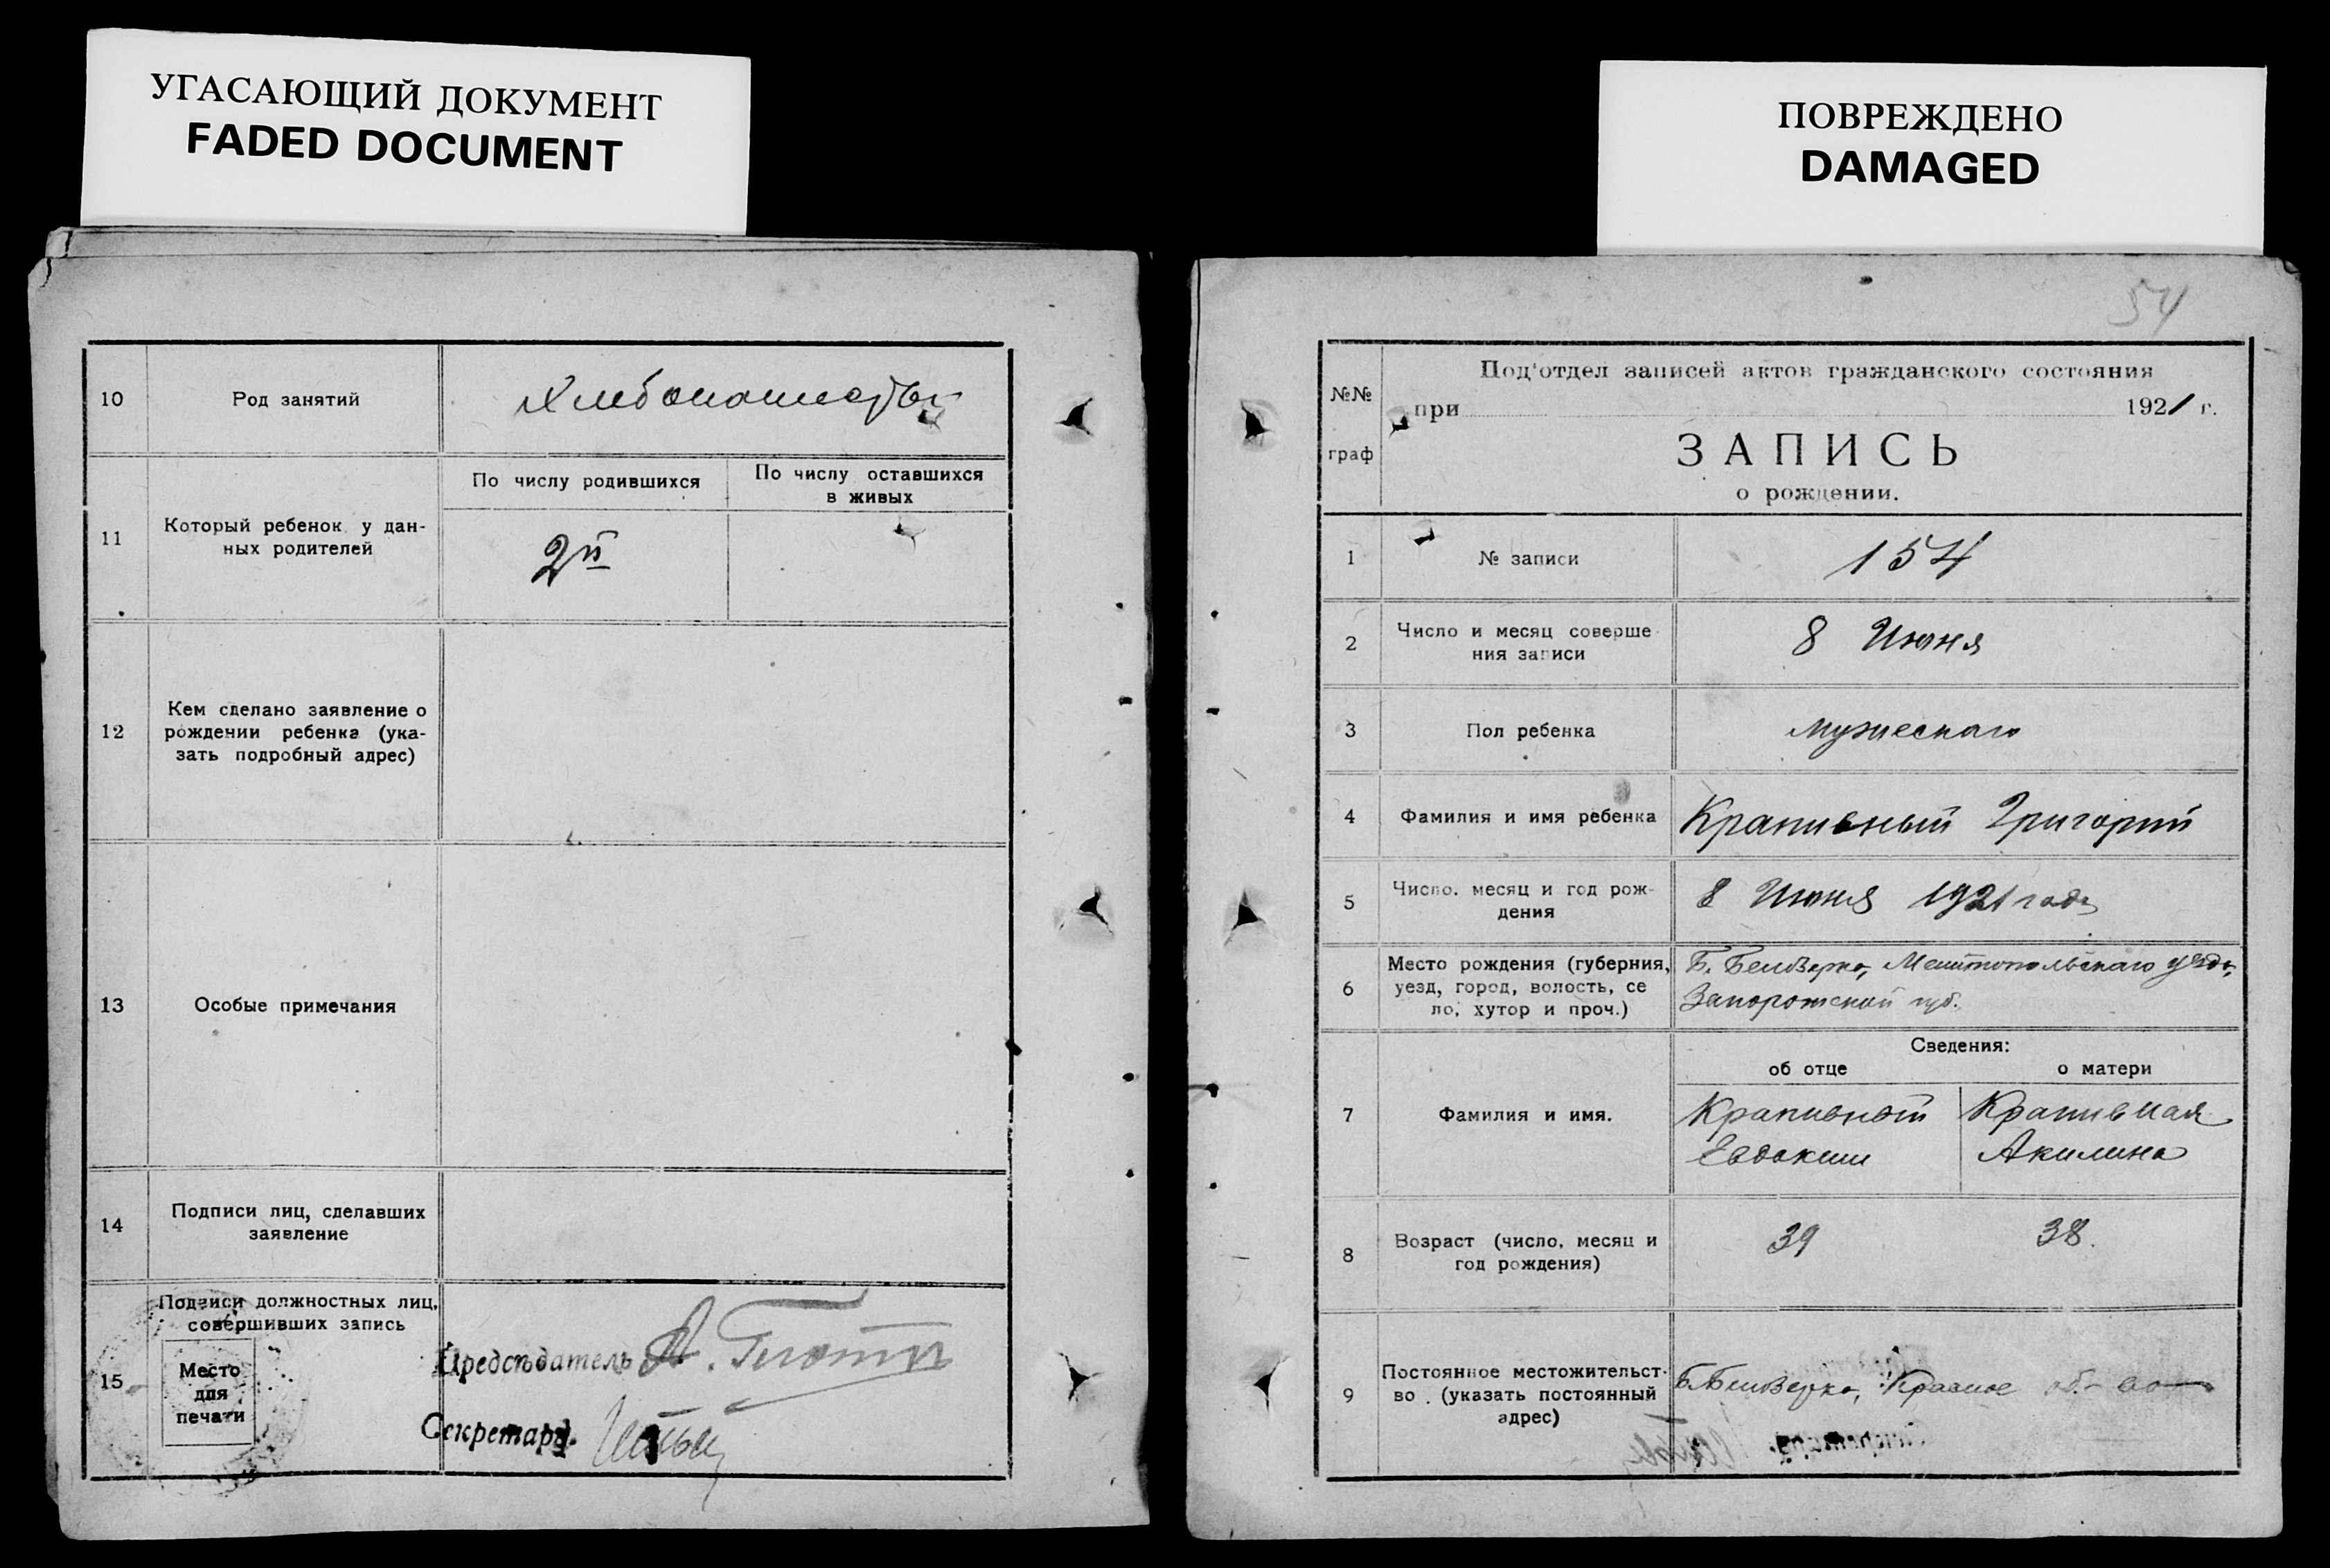 УГАСАЮЩИЙ ДОКУМЕНТ
FADED DOCUMENT
10
Род занятий
11
Который ребенок у дан-
ных родителей
По числу родившихся
По числу оставшихся
в живых
2й
12
Кем сделано заявление о
рождении ребенка (ука-
зать подробный адрес)
13
Особые примечания
14
Подписи лиц, сделавших
заявление
15
Подписи должностных лиц,
совершивших запись
Место
для
печати
Председатель А.
Секретарь
ПОВРЕЖДЕНО
DAMAGED
54
№№
граф
Под'отдел записей актов гражданского состояния
при 1921 г.
ЗАПИСЬ
о рождении.
1
№ записи
154
2
Число и месяц соверше
ния записи
8 Июня
3
Пол ребенка
мужескаго
4
Фамилия и имя ребенка
Крапивный Григорий
5
Число, месяц и год рож-
дения
8 Июня 1921 года
6
Место рождения (губерния,
уезд, город, волость, се
ло, хутор и проч.)
Б. Белозерка, Мелитопольскаго уезда,
Запорожской губ.
7
Фамилия и имя.
Сведения:
об отце
о матери
Крапивной
Евдоким
Крапивная
Акилина
8
Возраст (число, месяц и
год рождения)
39
38.
9
Постоянное местожительст-
во (указать постоянный
адрес)
Б. Белозерка, Красное об-во